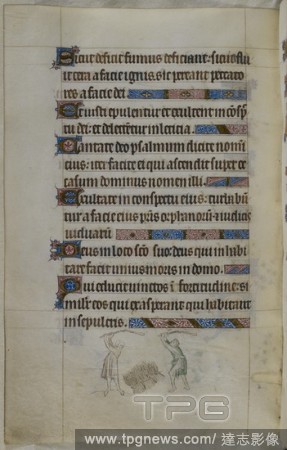 Sicut deficit fumus deficiant: sicut flu
it cera a facie ignis, sic pereant peccato
res a facie dei
Et iusti epulentur et exultent in cōspe
ctu dei: et delectentur in leticia.
Cantate deo psalmum dicite nomini
eius: iter facite ei qui ascendit super oc
casum dominus nomen illi.
Exultate in conspectu eius: turbabū
tur a facie eius pūs orphanorū: iudicis
viduarū
Deus in loco sōo suo: deus qui inhabi
tare facit unius moris in domo.
Qui educit uinctos in fortitudine: si
militer eos qui exasperant qui habitant
in sepulcris.
TPG
www.tpgnews.com/ 達志影像